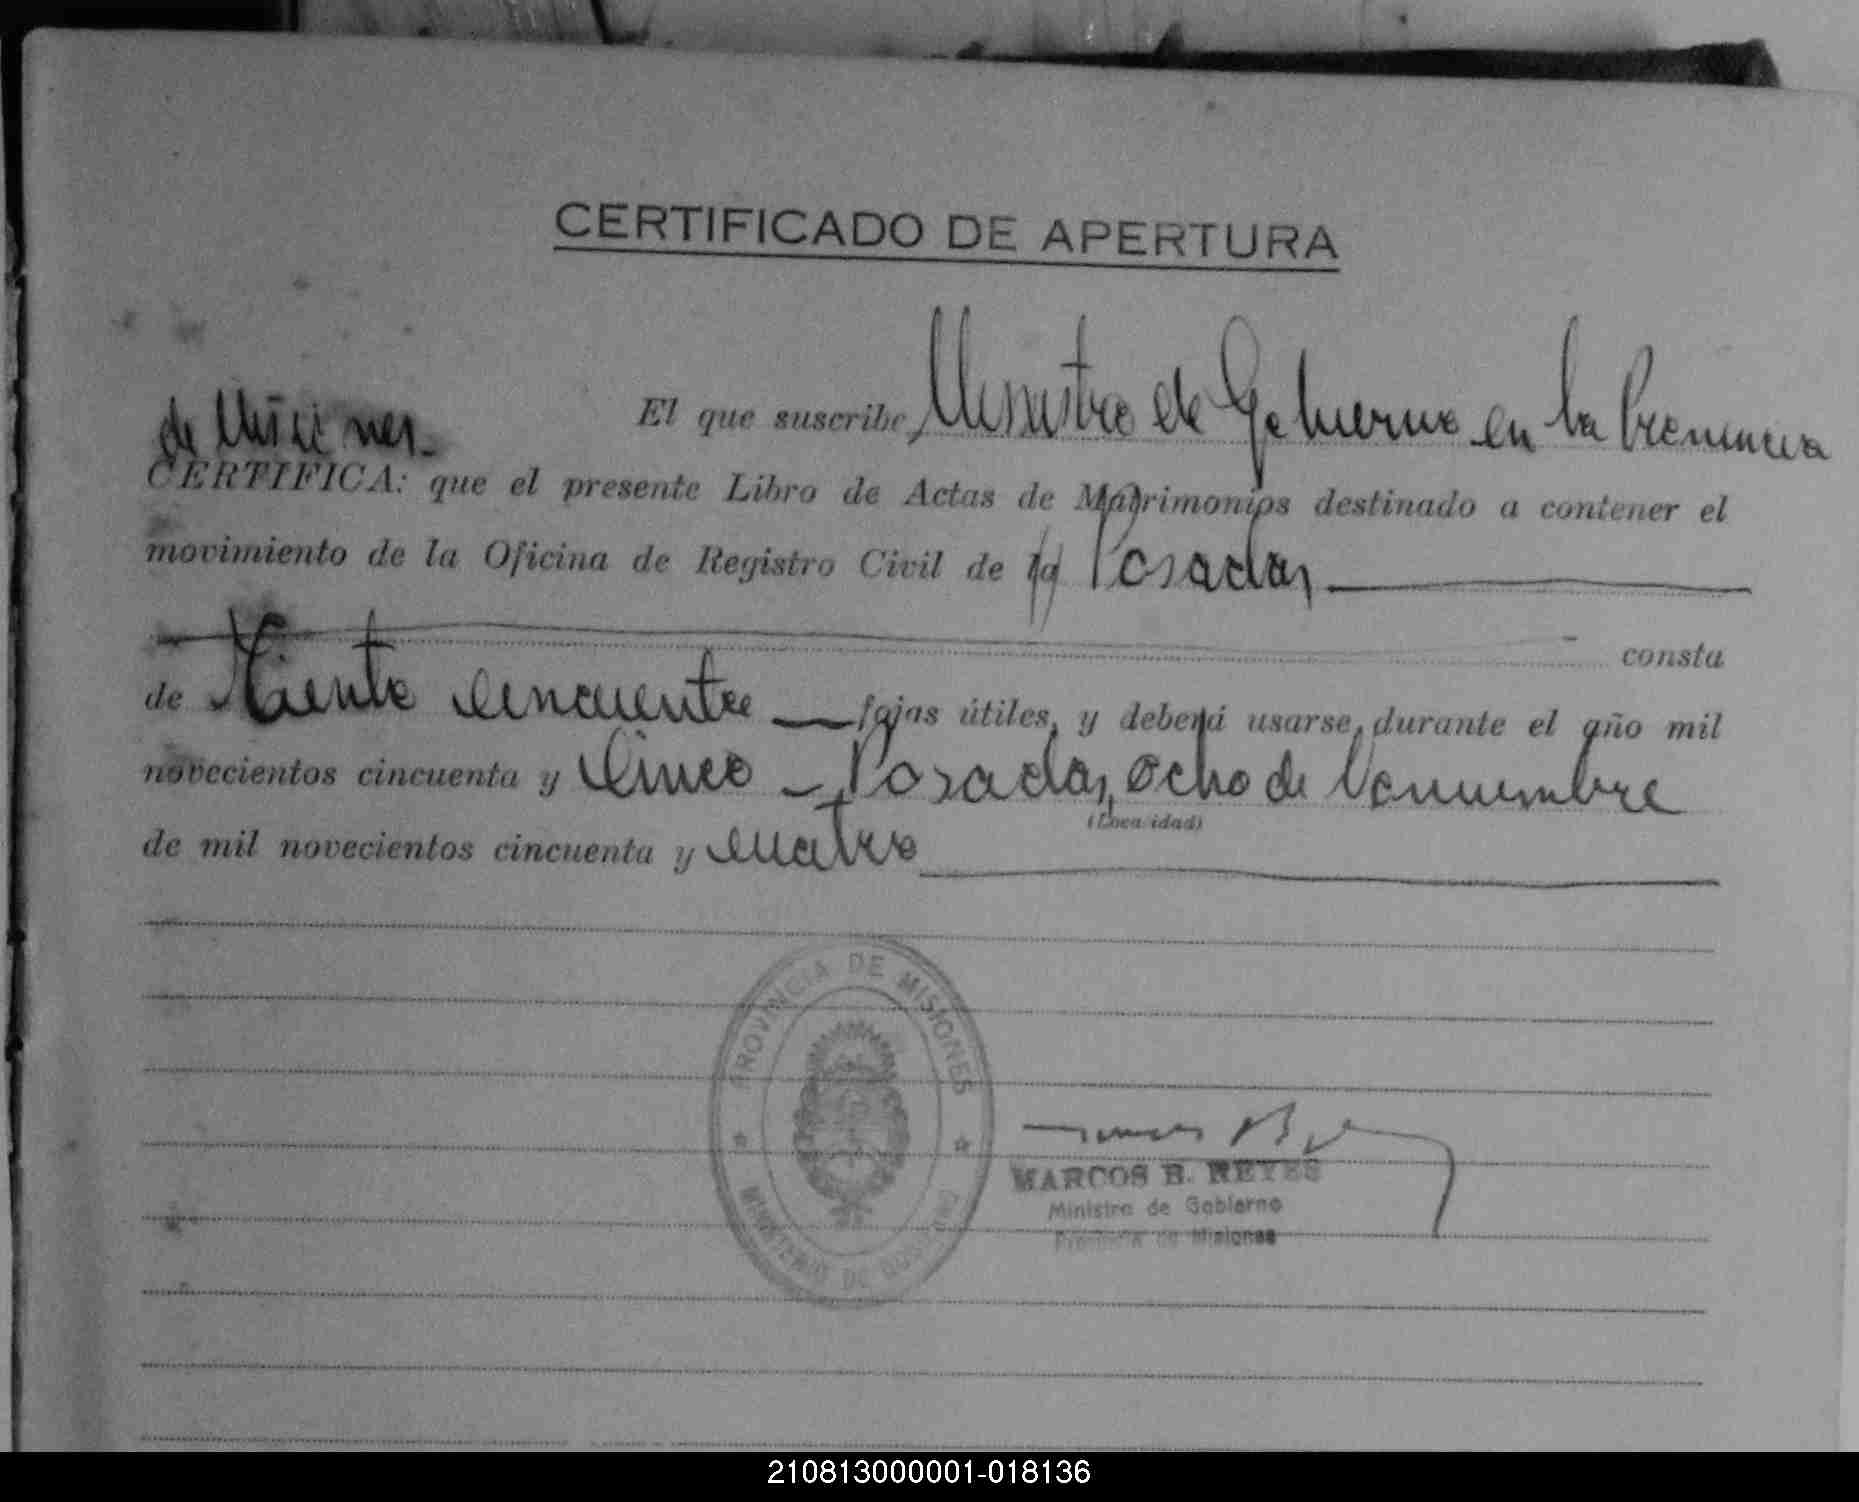 CERTIFICADO DE APERTURA
El que suscribe, Ministro de Gobierno en la Provincia
de Misiones.-
CERTIFICA: que el presente Libro de Actas de Matrimonios destinado a contener el
movimiento de la Oficina de Registro Civil de Posadas
consta
de Ciento cincuenta fojas útiles, y deberá usarse, durante el año mil
novecientos cincuenta y Cinco - Posadas, ocho de Noviembre
(Localidad)
de mil novecientos cincuenta y cuatro
PROVINCIA DE MISIONES
MINISTERIO DE GOBIERNO
MARCOS B. REYES
Ministro de Gobierno
Provincia de Misiones
210813000001-018136